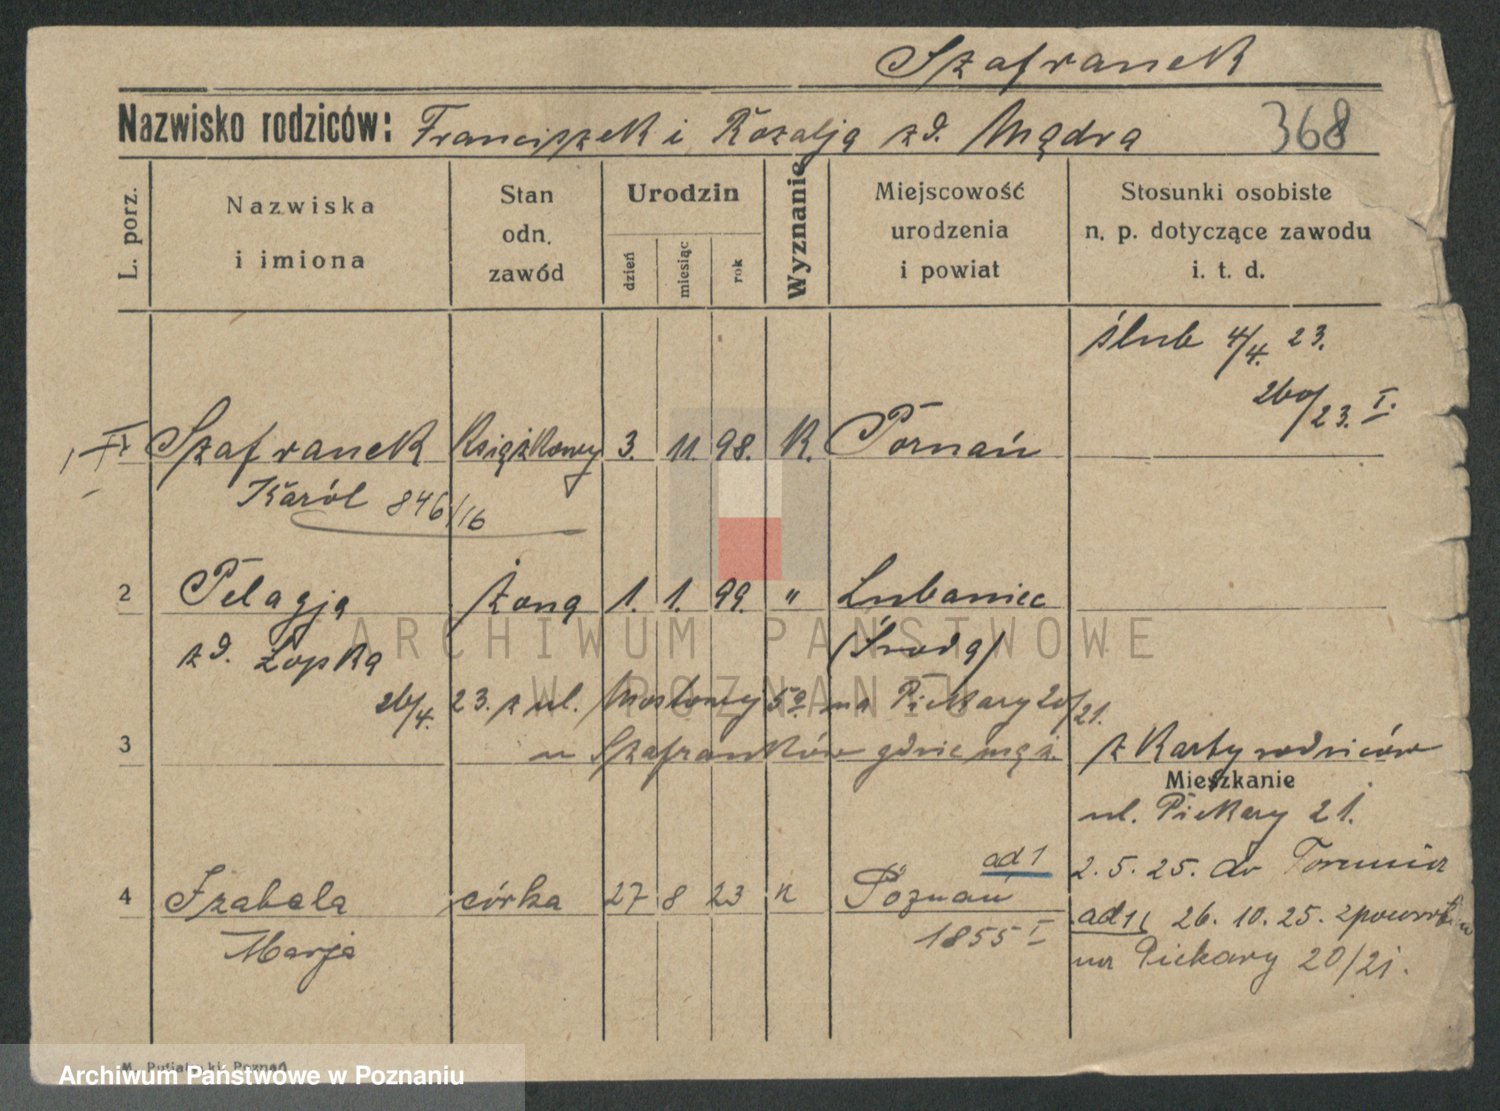 Szafranek
Nazwisko rodziców: Franciszek i Rozalja zd. Mądra 368
L. porz.
Nazwiska
i imiona
Stan
odn.
zawód
Urodzin
dzień
miesiąc
rok
Wyznanie
Miejscowość
urodzenia
i powiat
Stosunki osobiste
n. p. dotyczące zawodu
i. t. d.
ślub 4/4. 23.
260/23. I.
1 Szafranek Książkowy 3. 11. 98. K. Poznań
Karól 846/16
2 Pelagja żona 1. 1. 99. " Lubaniec
zd. Łopka (Środa)
26/4. 23. z ul. Mostowej na Piekary 20/21.
3 u Szafranków gdzie mąż. z Karty rodziców
Mieszkanie
ul. Piekary 21.
ad 1 2. 5. 25. do Torunia
4 Izabela córka 27 8 23 k Poznań
Marja 1855 I
ad 1 26. 10. 25. zpowrotem
na Piekary 20/21.
M. Putiatycki, Poznań
ARCHIWUM PAŃSTWOWE
W POZNANIU
Archiwum Państwowe w Poznaniu